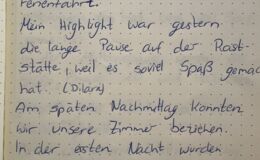 Ferienfahrt.
Mein Highlight war gestern
die lange Pause auf der Rast-
stätte, weil es soviel Spaß gemac
hat. (Dilara)
Am späten Nachmittag konnten
wir unsere Zimmer beziehen.
In der ersten Nacht wurden